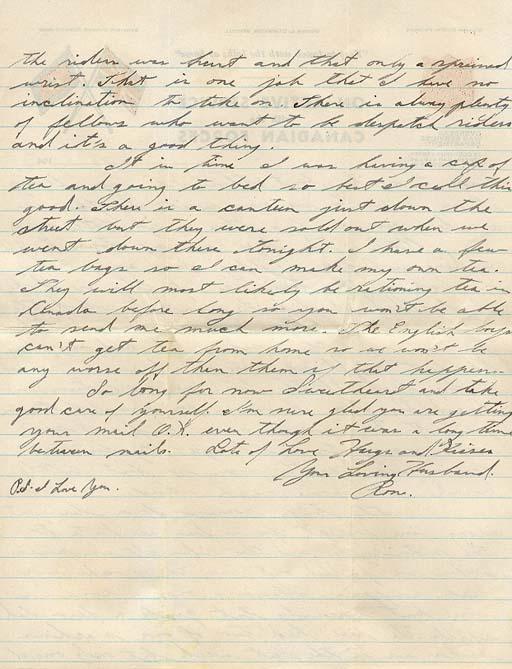 the riders was hurt and that only a sprained
wrist. That is one job that I have no
inclination to take on. There is alway plenty
of fellows who want to be despatch riders
and it's a good thing.
It in time I was having a cup of
tea and going to bed so best I call this
good. There is a canteen just down the
street but they were sold out when we
went down there tonight. I have a few
tea bags so I can make my own tea.
They will most likely be rationing tea in
Canada before long so you won't be able
to send me much more. The English boys
can't get tea from home so we won't be
any worse off then them if that happens.
So long for now Sweetheart and take
good care of yourself. I'm sure glad you are getting
your mail O.K. even though it was a long time
between mails. Lots of Love Hugs and Kisses
Your Loving Husband.
P.S. I Love You.
Ron.
CANADIAN FORCES